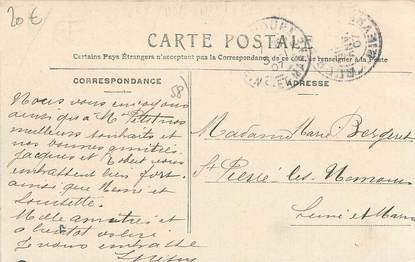 20 €
CARTE POSTALE
Certains Pays Étrangers n'acceptant pas la Correspondance de ce côté, se renseigner à la Poste
CORRESPONDANCE
ADRESSE
58)
Nous vous envoyons
ainsi qu'à Mr nos
meilleurs souhaits et
nos bonnes amitiés
Jacques et vous
embrassent bien fort
ainsi que et
Louisette
Mille amitiés et
à bientôt
Je vous embrasse
Madame Marie Bergeret
St Pierre-les-Nemours
Seine et Marne